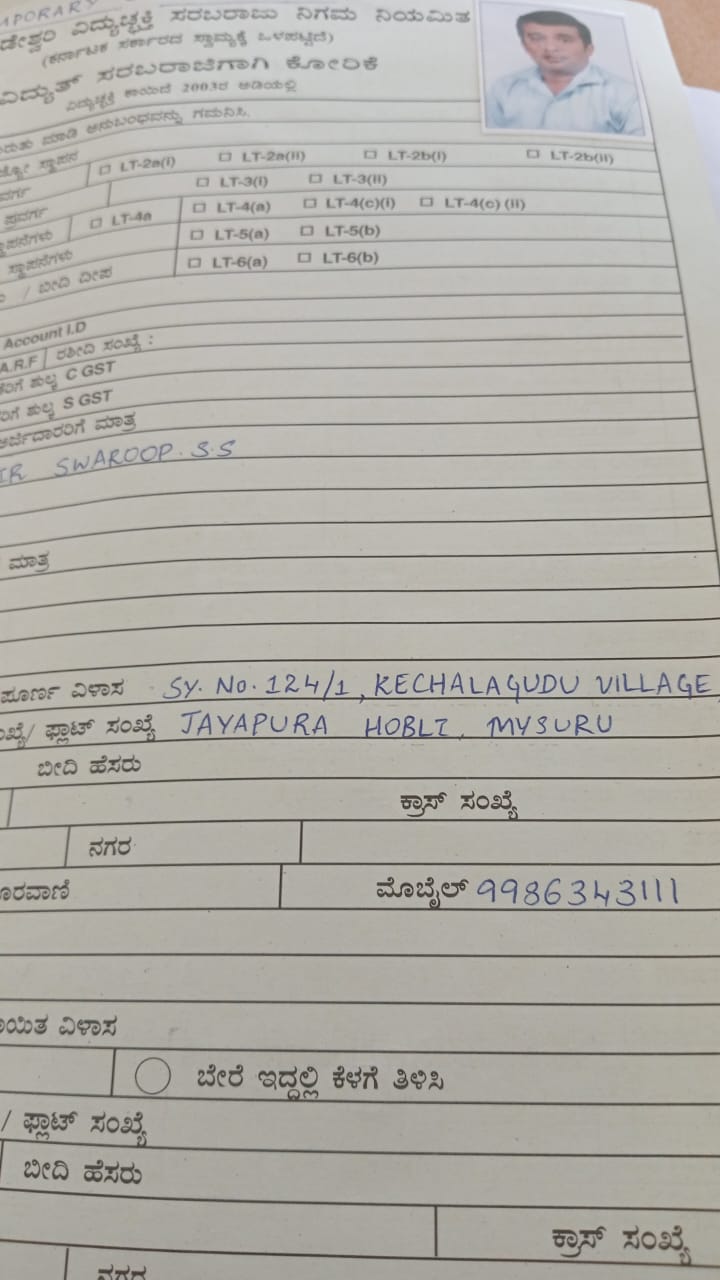 APORARY
ಡೇಶ್ವರಿ ವಿದ್ಯುಚ್ಛಕ್ತಿ ಸರಬರಾಜು ನಿಗಮ ನಿಯಮಿತ
(ಕರ್ನಾಟಕ ಸರ್ಕಾರದ ಸ್ವಾಮ್ಯಕ್ಕೆ ಒಳಪಟ್ಟಿದೆ)
ವಿದ್ಯುತ್ ಸರಬರಾಜಿಗಾಗಿ ಕೋರಿಕೆ
ವಿದ್ಯುಚ್ಛಕ್ತಿ ಕಾಯಿದೆ 2003ರ ಅಡಿಯಲ್ಲಿ
ಮಾಡಿ ಅನುಬಂಧವನ್ನು ಗಮನಿಸಿ.
ಸ್ಥಾಪನ ☐ LT-2a(i) ☐ LT-2a(ii) ☐ LT-2b(i) ☐ LT-2b(ii)
ವರ್ಗ ☐ LT-3(i) ☐ LT-3(ii)
ಪ್ರವರ್ಗ ☐ LT-4a ☐ LT-4(a) ☐ LT-4(c)(i) ☐ LT-4(c) (ii)
ಸ್ಥಾಪನೆಗಳು ☐ LT-5(a) ☐ LT-5(b)
ಸ್ಥಾಪನೆಗಳು
/ ಬೀದಿ ದೀಪ ☐ LT-6(a) ☐ LT-6(b)
Account I.D
A.R.F ರಶೀದಿ ಸಂಖ್ಯೆ :
ಶುಲ್ಕ C GST
ಶುಲ್ಕ S GST
ಅರ್ಜಿದಾರರಿಗೆ ಮಾತ್ರ
IR SWAROOP. S.S
ಮಾತ್ರ
ಪೂರ್ಣ ವಿಳಾಸ SY. No. 124/1, KECHALAGUDU VILLAGE,
ಖ್ಯೆ/ ಫ್ಲಾಟ್ ಸಂಖ್ಯೆ JAYAPURA HOBLI, MYSURU
ಬೀದಿ ಹೆಸರು
ಕ್ರಾಸ್ ಸಂಖ್ಯೆ
ನಗರ
ೂರವಾಣಿ ಮೊಬೈಲ್ 9986343111
ಾಯಿತ ವಿಳಾಸ
ಬೇರೆ ಇದ್ದಲ್ಲಿ ಕೆಳಗೆ ತಿಳಿಸಿ
/ ಫ್ಲಾಟ್ ಸಂಖ್ಯೆ
ಬೀದಿ ಹೆಸರು
ಕ್ರಾಸ್ ಸಂಖ್ಯೆ
ನಗರ